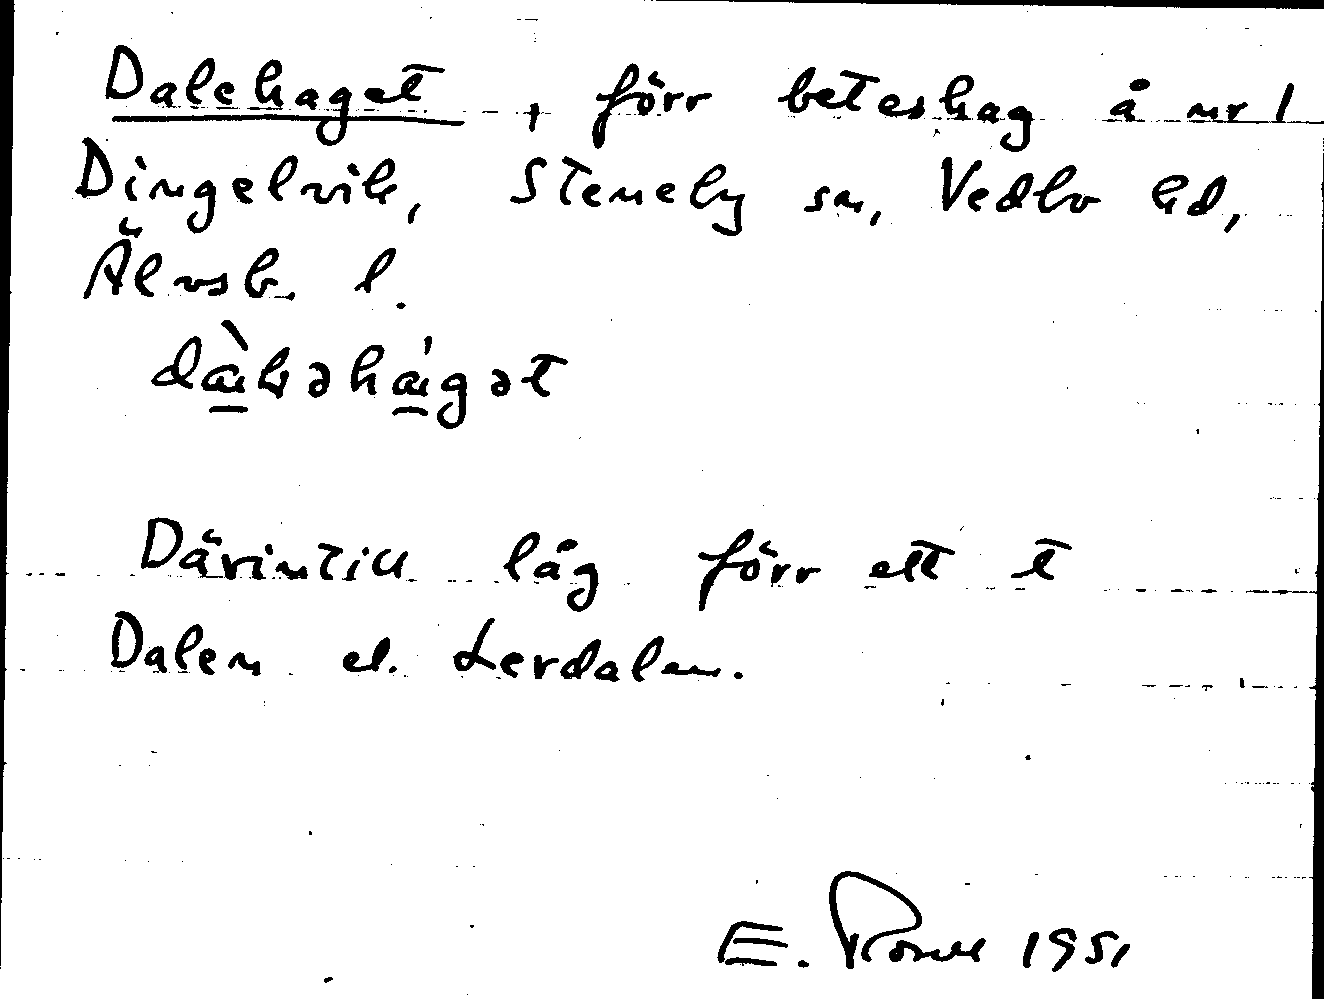 Dalehaget, förr beteshag å nr 1
Dingelvik, Steneby sn, Vedbo hd,
Älvsb. l.
Därintill låg förr ett t
Dalen el. Lerdalen.
E. 1951